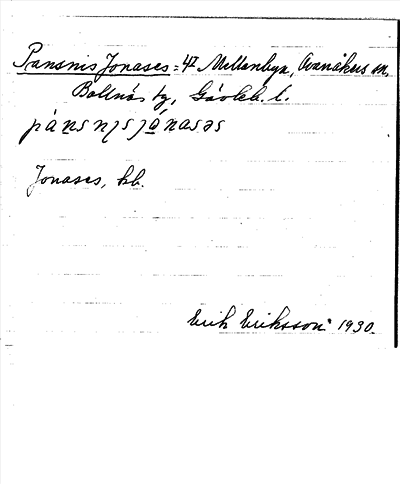 Pansnis Jonases = 4² Mellanbyn, Ovanåkers sn,
Bollnäs tg, Gävleb. l.
pànsnɩsjónasəs
Jonases, hb.
Erik Eriksson 1930.